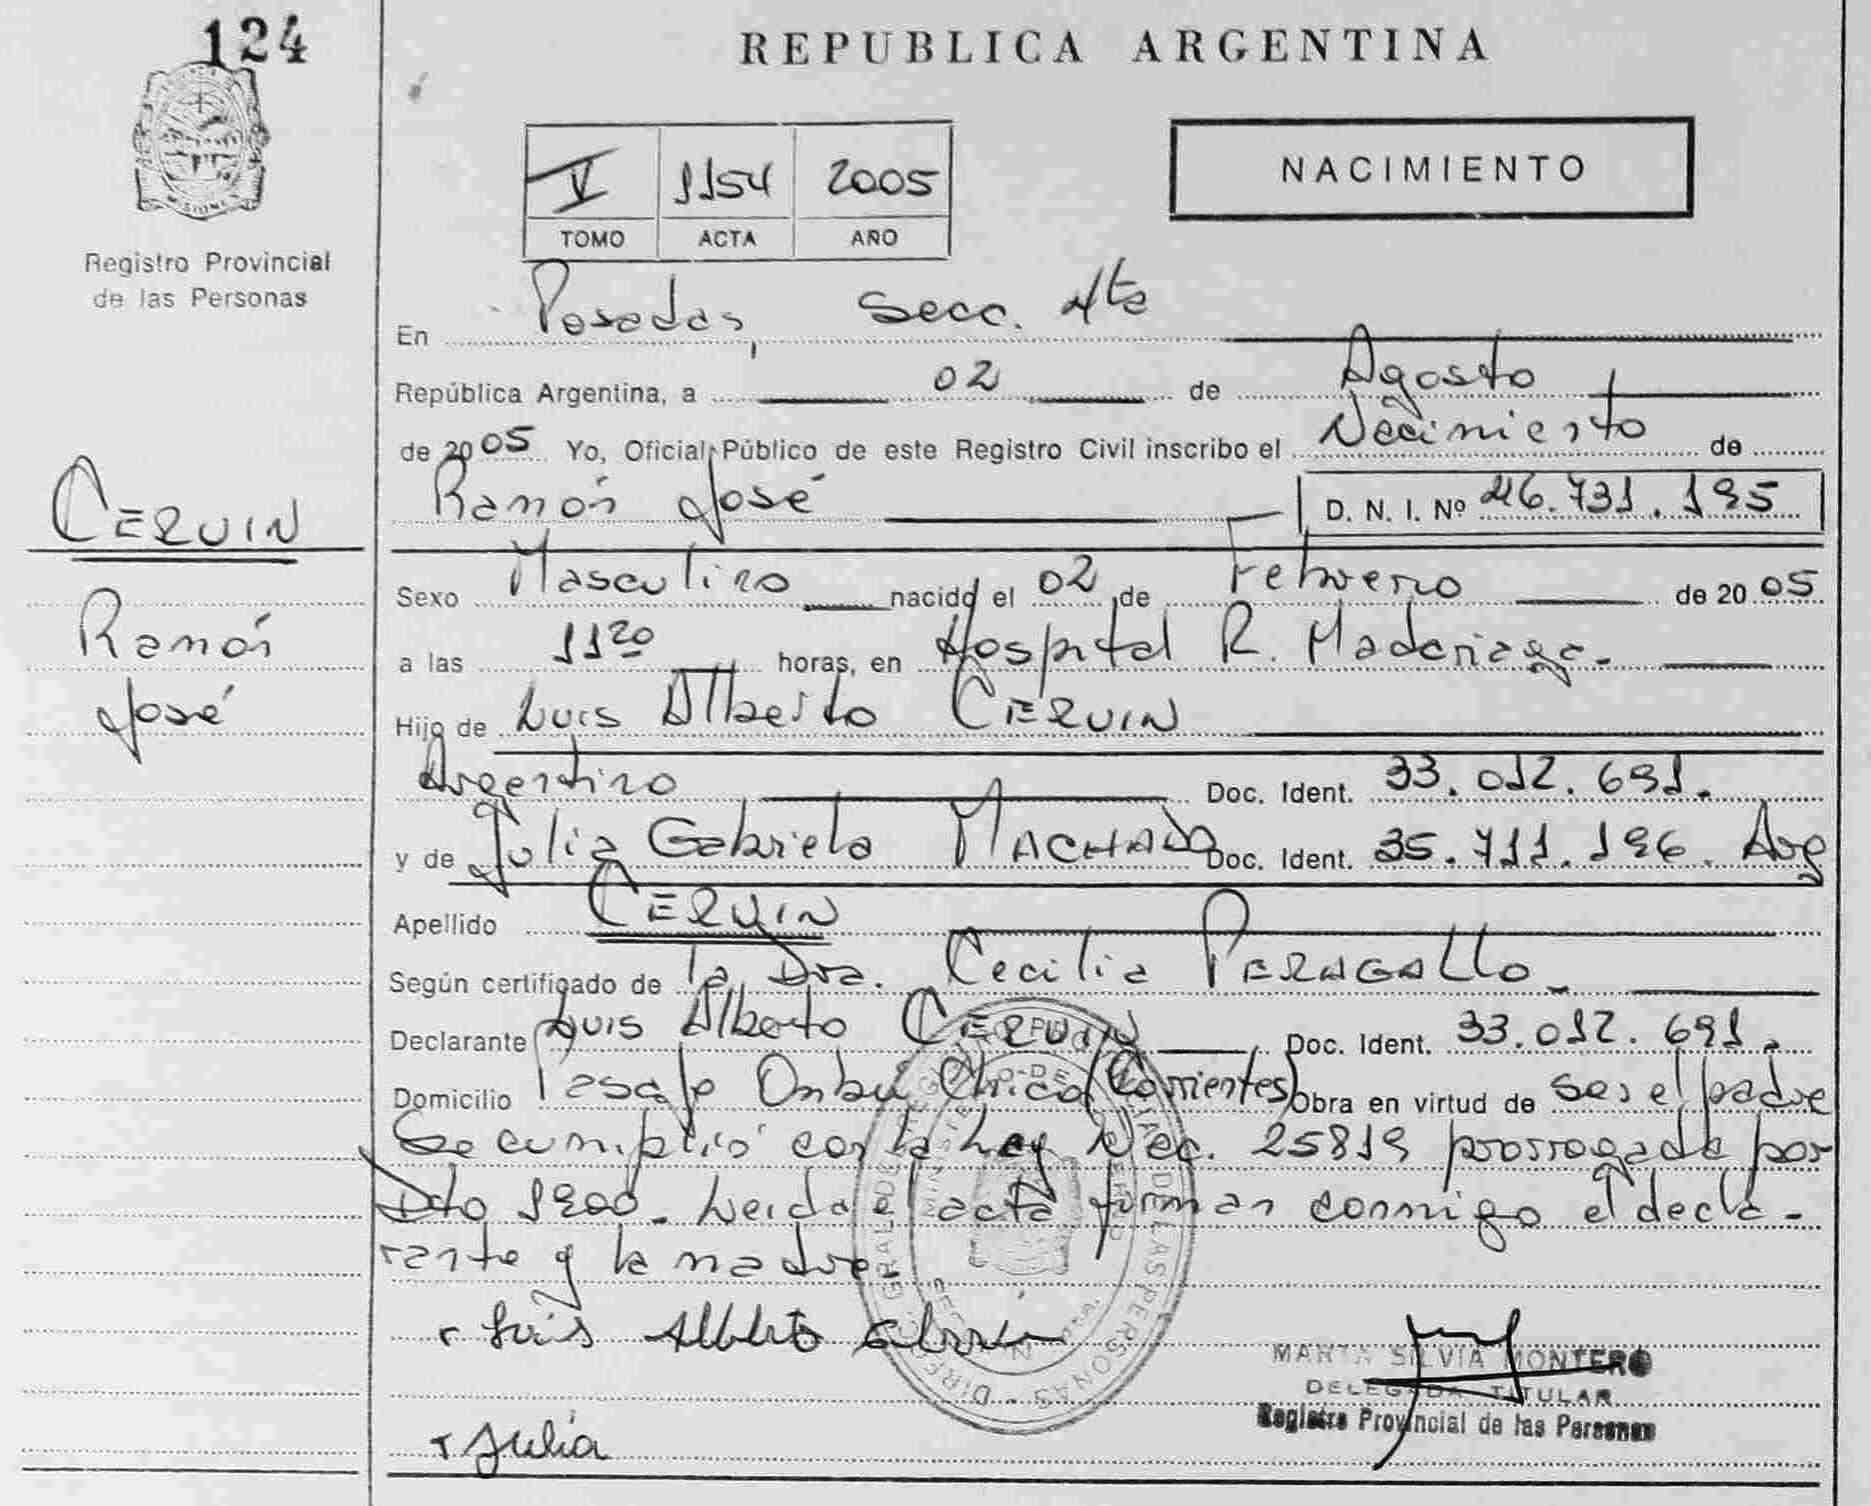 124
REPUBLICA ARGENTINA
V 1154 2005
TOMO ACTA AÑO
NACIMIENTO
MISIONES
Registro Provincial
de las Personas
En Posadas, Secc. 4ta
República Argentina, a 02 de Agosto
de 2005 Yo, Oficial Público de este Registro Civil inscribo el Nacimiento de
Ramón José D. N. I. Nº 46.731.195
CERUIN
Ramón
José
Sexo Masculino nacido el 02 de Febrero de 2005
a las 11 20 horas, en Hospital R. Madariaga.
Hijo de Luis Alberto CERUIN
Argentino Doc. Ident. 33.012.691.
y de Julia Gabriela MACHADO Doc. Ident. 35.711.196. Arg
Apellido CERUIN
Según certificado de la Dra. Cecilia PERAGALLO.
Declarante Luis Alberto CERUIN Doc. Ident. 33.012.691.
Domicilio Pasaje Ombú Chico (Corrientes) Obra en virtud de ser el padre
Se cumplió con la Ley Nac. 25819 prorrogada por
Dto 1200. Leida el acta firman conmigo el decla-
rante y la madre
Luis Alberto
Julia
MARTA SILVIA MONTERO
DELEGADA TITULAR
Registro Provincial de las Personas